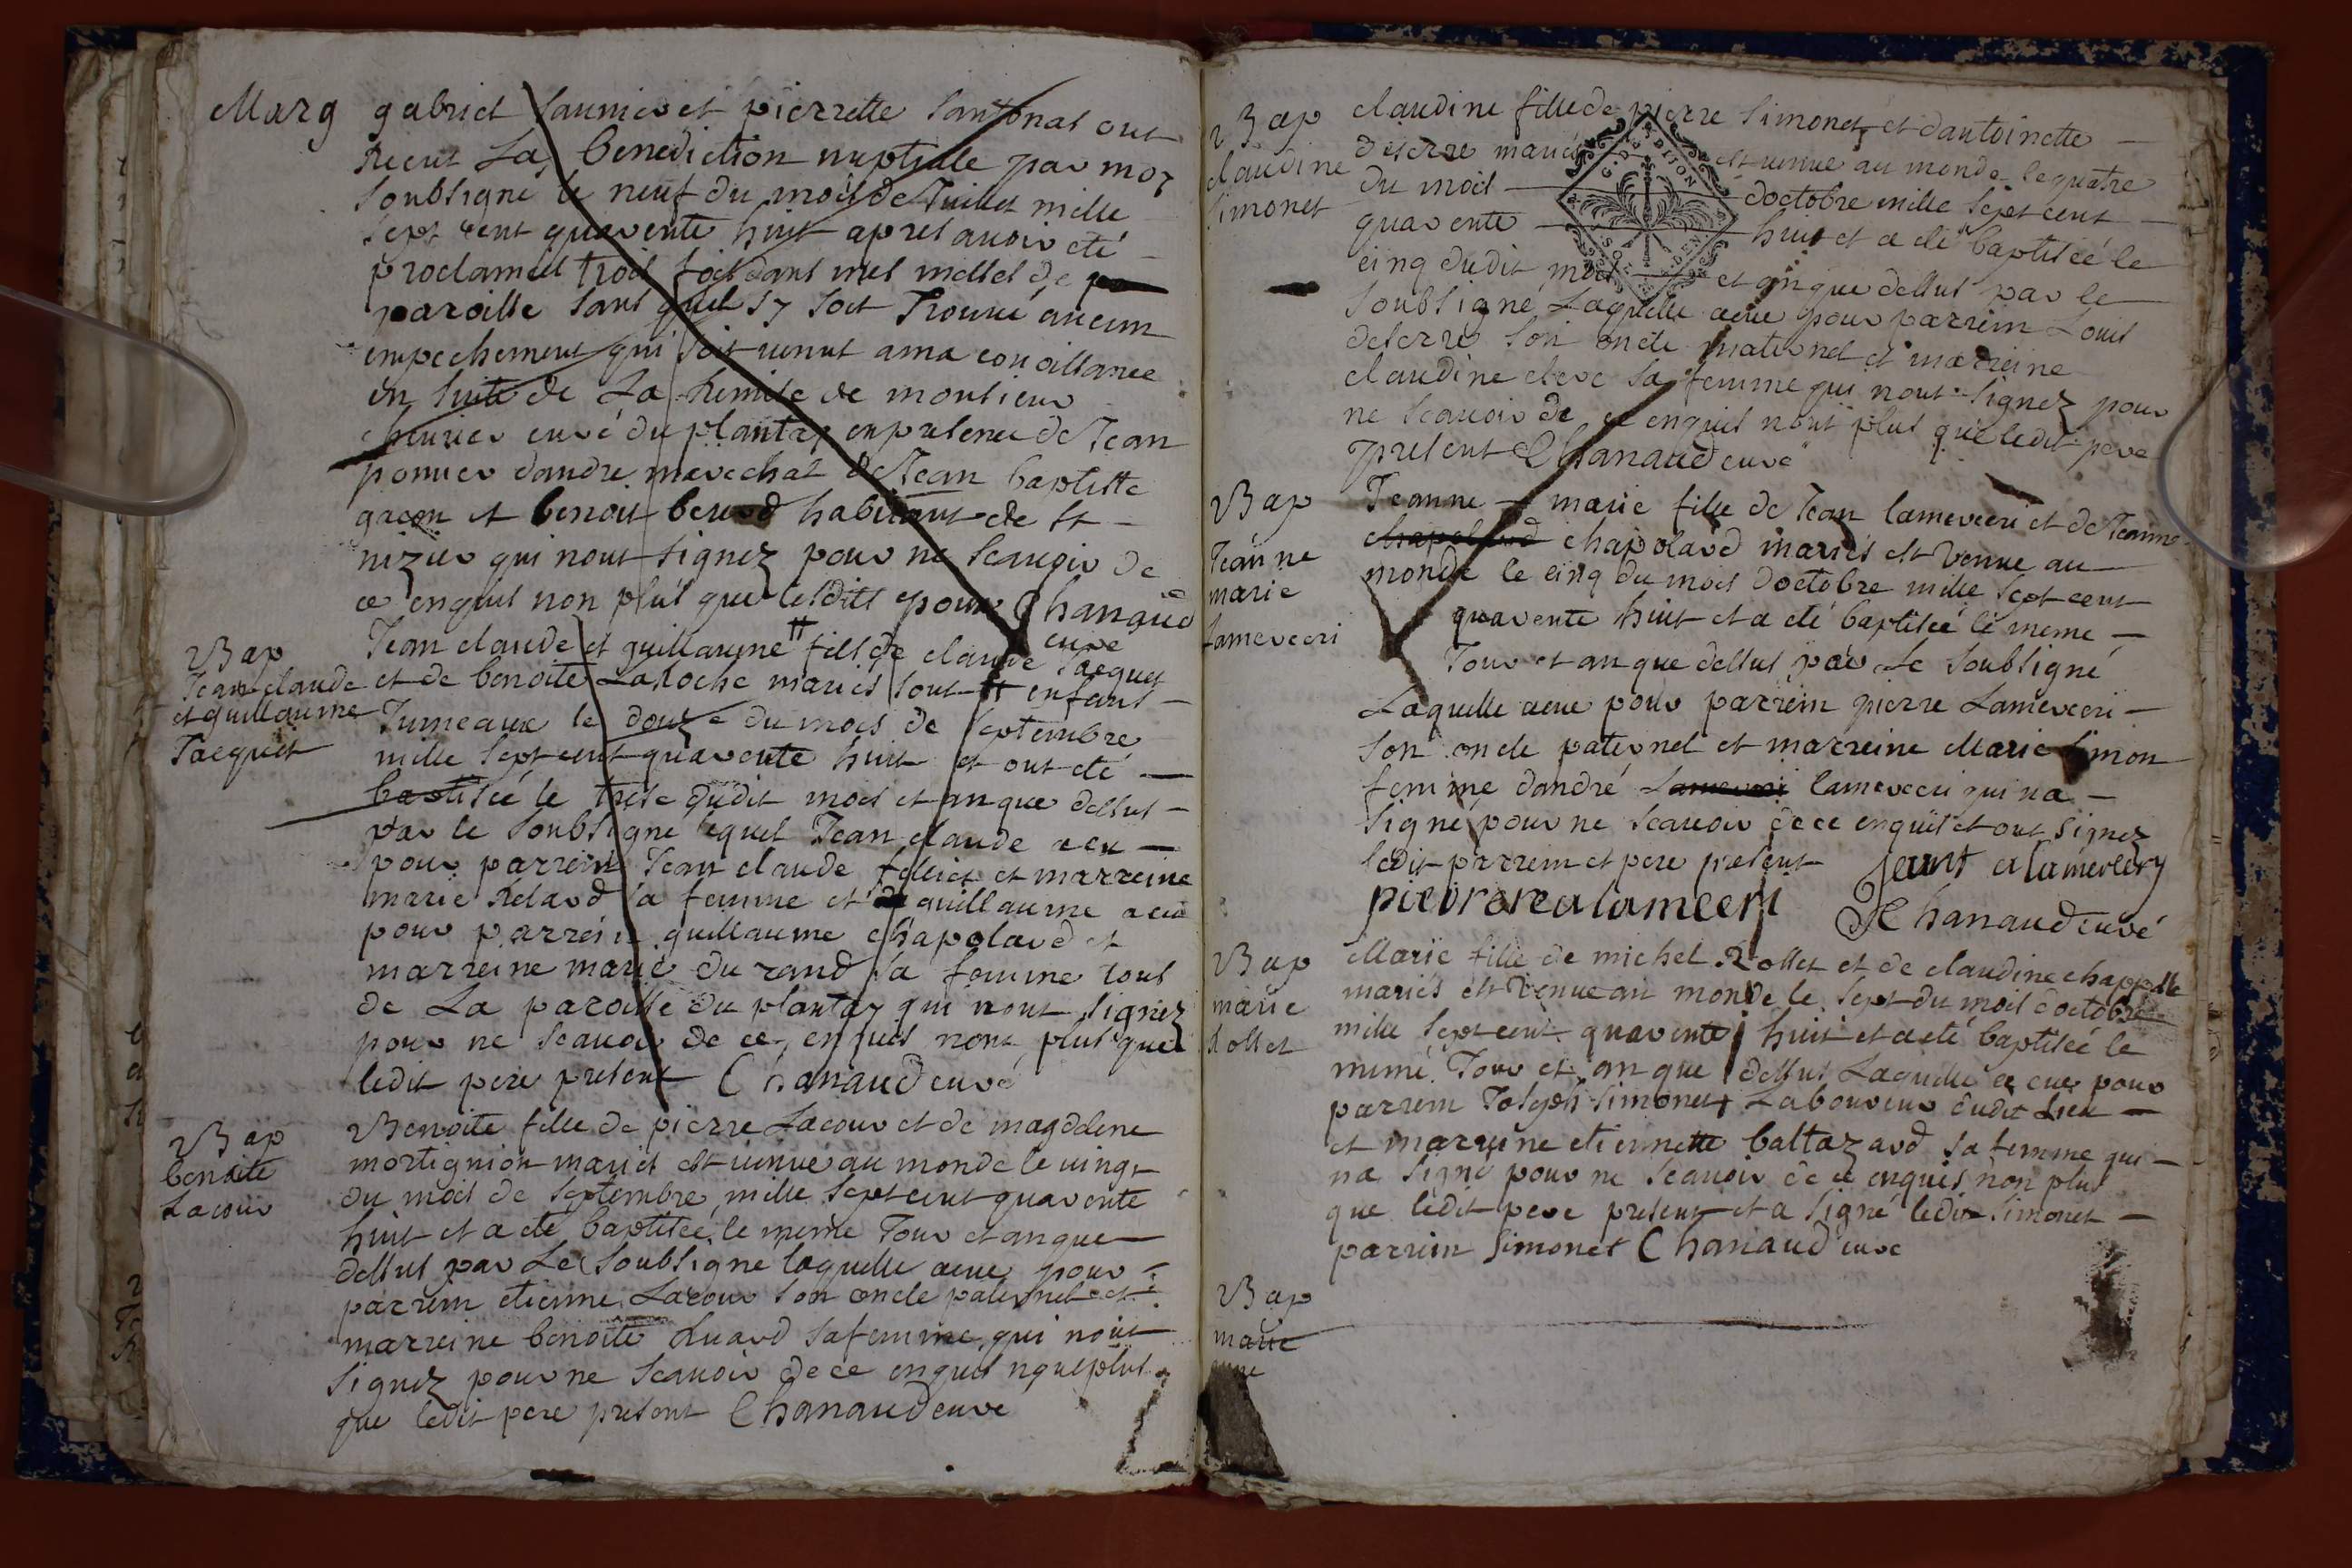 Marg
gabriel saunier et pierrette santonas ont
Recus La benediction nuptiale par moy
soubsigné le neuf du mois de Juillet mille
sept cent quarente huit apres avoir eté
proclamées trois fois dans mes messes de
paroisse sans quil sy soit Trouvé aucun
empechement qui soit venut a ma conoissance
en suite de La Remise de monsieur
curé du plantay en presence de Jean
ponner dandré marechal de Jean baptiste
gacon et benoit berod habitant de st
nizier qui nont signez pour ne scavoir de
ce enquis non plus que lesdits epoux Chanaud
curé
Bap
Jean claude
et guillaume
Jacquet
Jean claude et guillaume fils de claude Jacquet
et de benoite LaRoche mariés sont enfans
Jumeaux le douze du mois de septembre
mille sept cent quarente huit et ont eté
baptisée le treise dudit mois et an que dessus
par le soubsigné lequel Jean claude a eu
pour parrein Jean claude felix et marreine
marie Relavd sa femme et guillaume a eu
pour parrein guillaume chapolard et
marreine marie durand sa femme tous
de La paroisse du plantay qui nont signez
pour ne scavoir de ce enquis non plus que
ledit pere présent Chanaud curé
Bap
benoite
Lacour
Benoite fille de pierre Lacour et de magdelene
mortegnion mariés est venue au monde le vingt
du mois de septembre mille sept cent quarente
huit et a eté baptisée le meme Jour et an que
dessus par Le soubsigné laquelle a eue pour
parrein etienne Lacour son oncle paternel et
marreine benoite Luard sa femme qui nont
signez pour ne scavoir de ce enquis non plus
que ledit pere present Chanaud curé
Bap
claudine
simonet
claudine fille de pierre simonet et dantoinette
deserre mariés est venue au monde le quatre
du mois doctobre mille sept cent
quarente huit et a eté baptisée le
cinq dudit mois et an que dessus par le
soubsigné Laquelle a eue pour parrein Louis
deserre son oncle maternel et marreine
claudine clerc sa femme qui nont signez pour
ne scavoir de ce enquis non plus que ledit pere
present Chanaud curé
G. DE DIJON
Bap
Jeanne
marie
Lamerceri
Jeanne marie fille de Jean lamerceri et de Jeanne
chapolard chapolard mariés est Venue au
monde le cinq du mois doctobre mille sept cent
quarente huit et a eté baptisée le meme
Jour et an que dessus par Le soubsigné
Laquelle a eue pour parrein pierre Lamerceri
son oncle paternel et marreine Marie simon
femme dandré lamerceri qui na
signé pour ne scavoir de ce enquis et ont signez
ledit parrein et pere présent Jean alamercery
Chanaud curé
Bap
marie
Rollet
Marie fille de michel Rollet et de claudine chappelle
mariés est Venue au monde le sept du mois doctobre
mille sept cent quarente huit et a eté baptisée le
meme Jour et an que dessus Laquelle a eue pour
parrein Joseph simonet Laboureur dudit Lieu
et marreine etiennette baltazard sa femme qui
na signé pour ne scavoir de ce enquis non plus
que ledit pere présent et a signé ledit simonet
parrein simonet Chanaud curé
Bap
marie